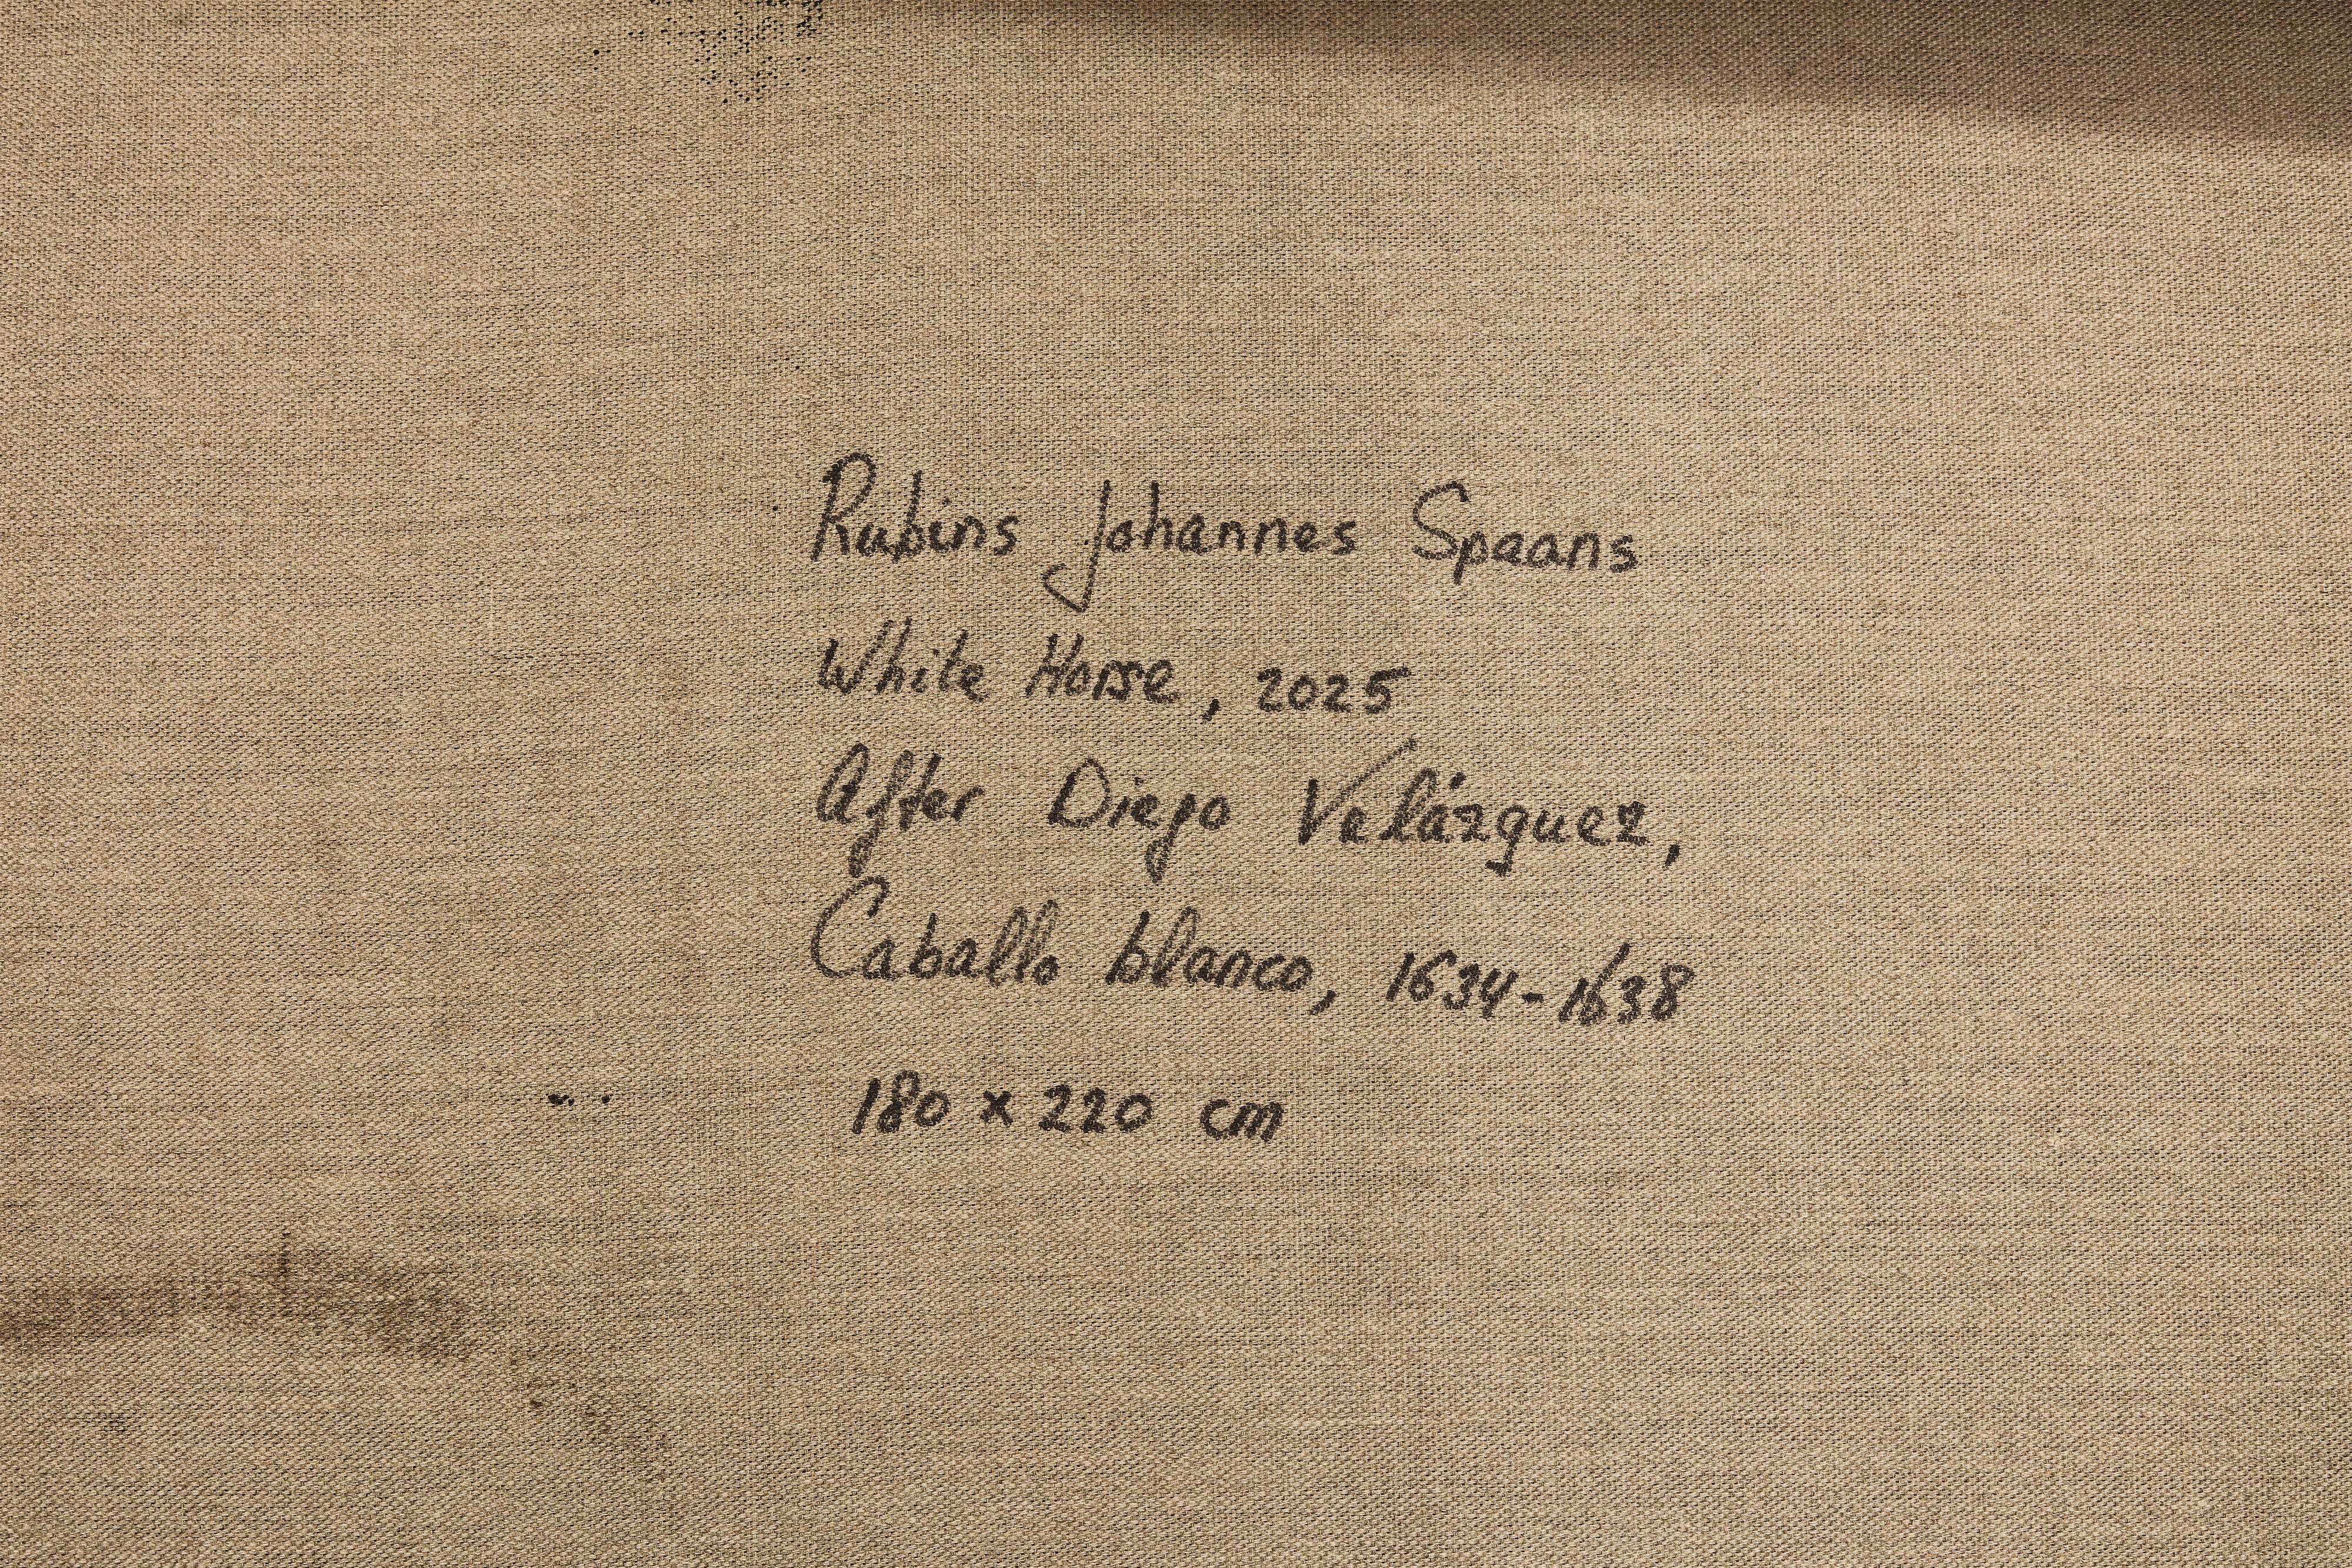 Rubins Johannes Spaans
White Horse, 2025
After Diego Velázquez,
Caballo blanco, 1634-1638
180 x 220 cm